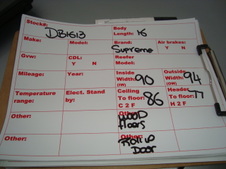 Stock#: DB4613 Body Length: 16
Make: Model: Brand: Supreme Air brakes: Y N
Gvw: CDL: Y N Reefer Model:
Mileage: Year: Inside Width(") 90 Outside Width(") 94
Temperature range: Elect. Stand by: Ceiling To floor: C 2 F 86 Header To floor: H 2 F 77
Other: Other: WOOD floors
Other: Other: Roll up Door